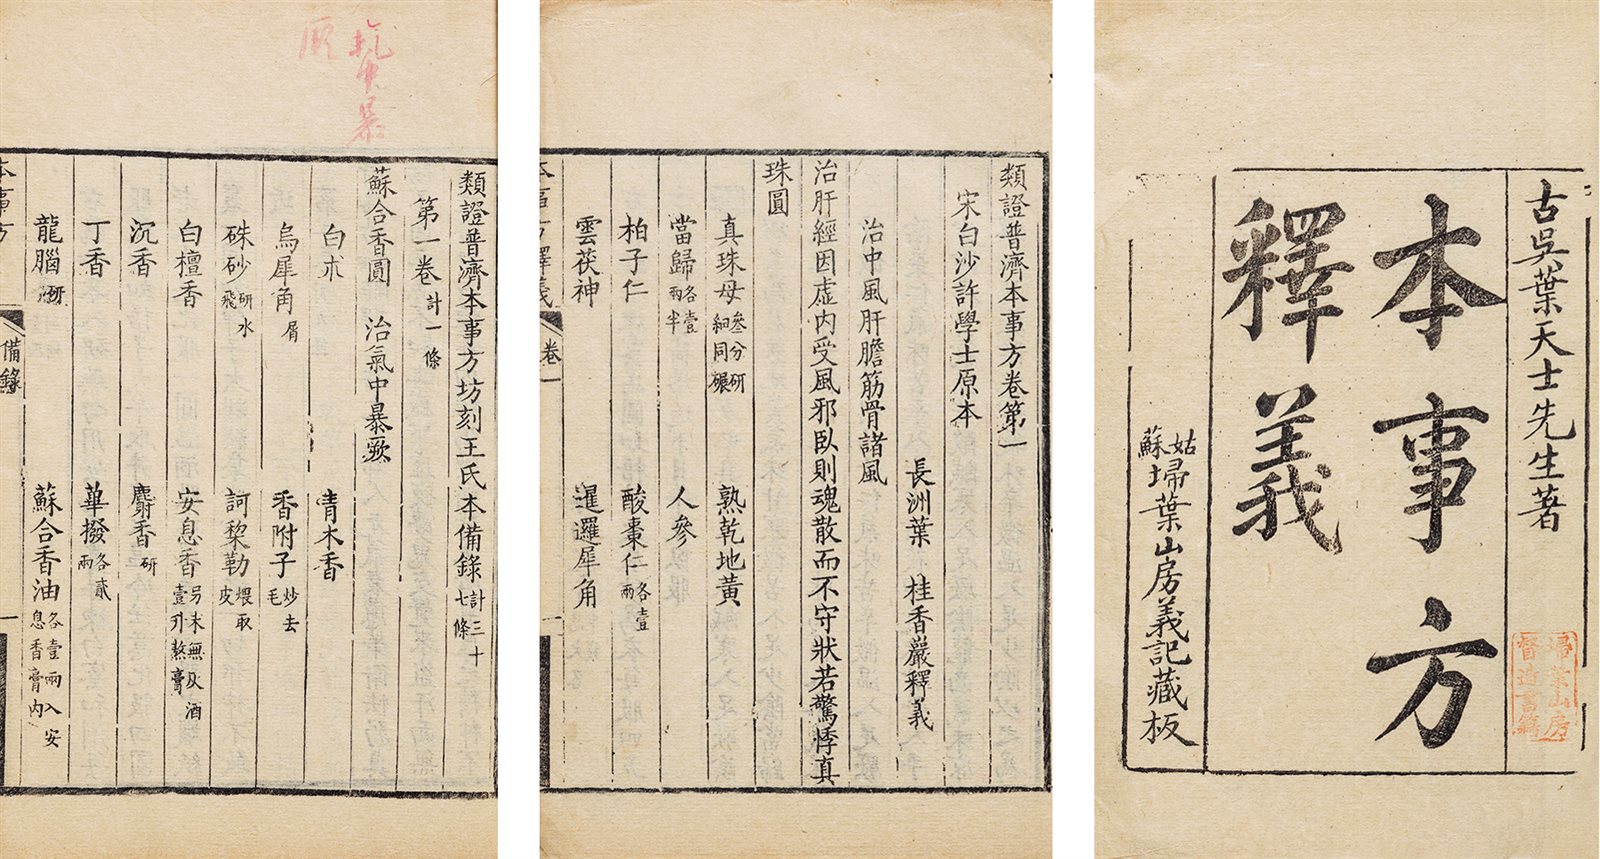 古吳葉天士先生著
本事方
釋義
姑蘇埽葉山房義記藏板
埽葉山房
督造書籍
類證普濟本事方卷第一
宋白沙許學士原本
長洲葉 桂香巖釋義
治中風肝膽筋骨諸風
治肝經因虛內受風邪臥則魂散而不守狀若驚悸真
珠圓
真珠母 參分研細同碾 熟乾地黃
當歸 各壹兩半 人參
柏子仁 酸棗仁 各壹兩
雲茯神 暹邏犀角
本事方釋義 卷一 一
類證普濟本事方坊刻王氏本備錄 計三十七條
第一卷 計一條
蘇合香圓 治氣中暴厥
白朮 青木香
烏犀角 屑 香附子 炒去毛
硃砂 研水飛 訶棃勒 煨取皮
白檀香 安息香 另末無灰酒壹升熬膏
沉香 麝香 研
丁香 華撥 各貳兩
龍腦 研 蘇合香油 各壹兩入安息香膏內
本事方 備錄 一